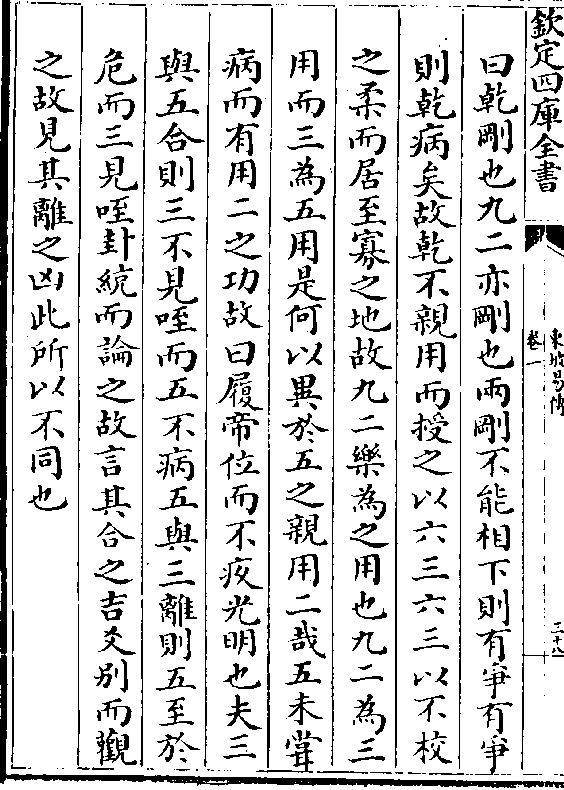 欽定四庫全書
東坡易傳
卷一
二十八
曰乾剛也九二亦剛也兩剛不能相下則有爭有爭
則乾病矣故乾不親用而授之以六三六三以不校
之柔而居至寡之地故九二樂為之用也九二為三
用而三為五用是何以異於五之親用二哉五未嘗
病而有用二之功故曰履帝位而不疚光明也夫三
與五合則三不見咥而五不病五與三離則五至於
危而三見咥卦統而論之故言其合之吉爻別而觀
之故見其離之凶此所以不同也